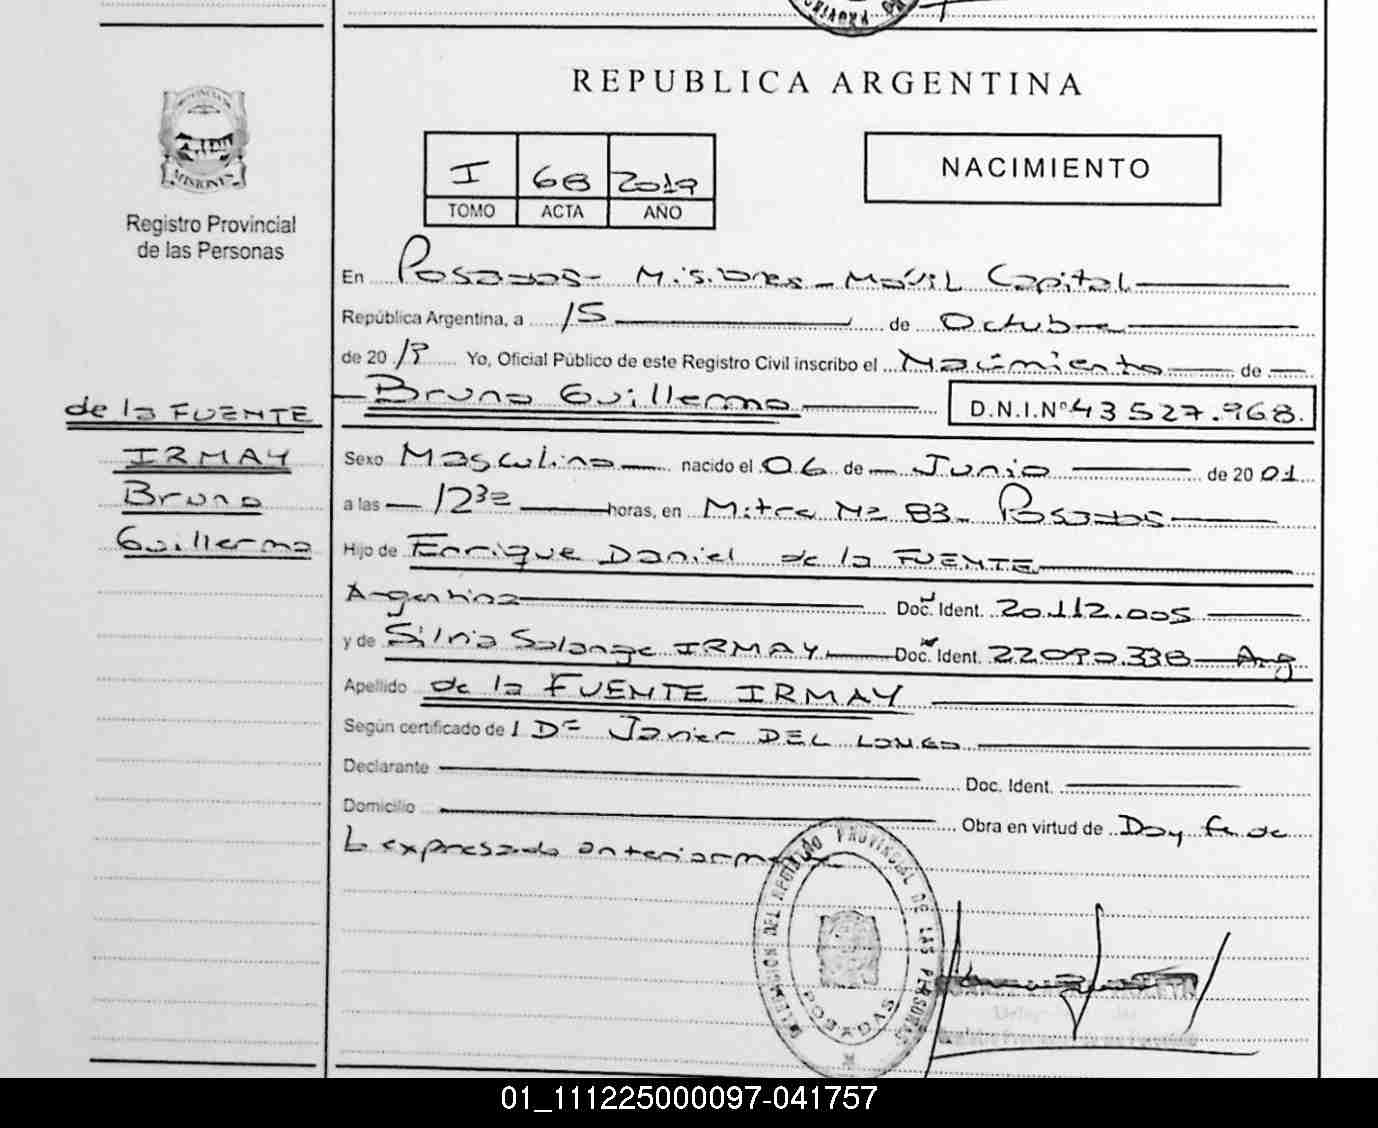 REPUBLICA ARGENTINA
PROVINCIA DE
MISIONES
Registro Provincial
de las Personas
I 68 2019
TOMO ACTA AÑO
NACIMIENTO
En Posadas - Misiones - Móvil Capital
República Argentina, a 15 de Octubre
de 2019 Yo, Oficial Público de este Registro Civil inscribo el Nacimiento de
Bruno Guillermo D.N.I.Nº 43527.968.
de la FUENTE
IRMAY
Bruno
Guillermo
Sexo Masculino nacido el 06 de Junio de 2001
a las 12 30 horas, en Mitre Nº 83 - Posadas
Hijo de Enrique Daniel de la FUENTE
Argentina Doc. Ident. 20.112.005
y de Silvia Solange IRMAY Doc. Ident. 22090.338 Arg
Apellido de la FUENTE IRMAY
Según certificado de 1 Dr Javier DEL LONGO
Declarante Doc. Ident.
Domicilio Obra en virtud de Doy fe de
lo expresado anteriormente
DELEGACION DEL REGISTRO PROVINCIAL DE LAS PERSONAS
POSADAS
01_111225000097-041757